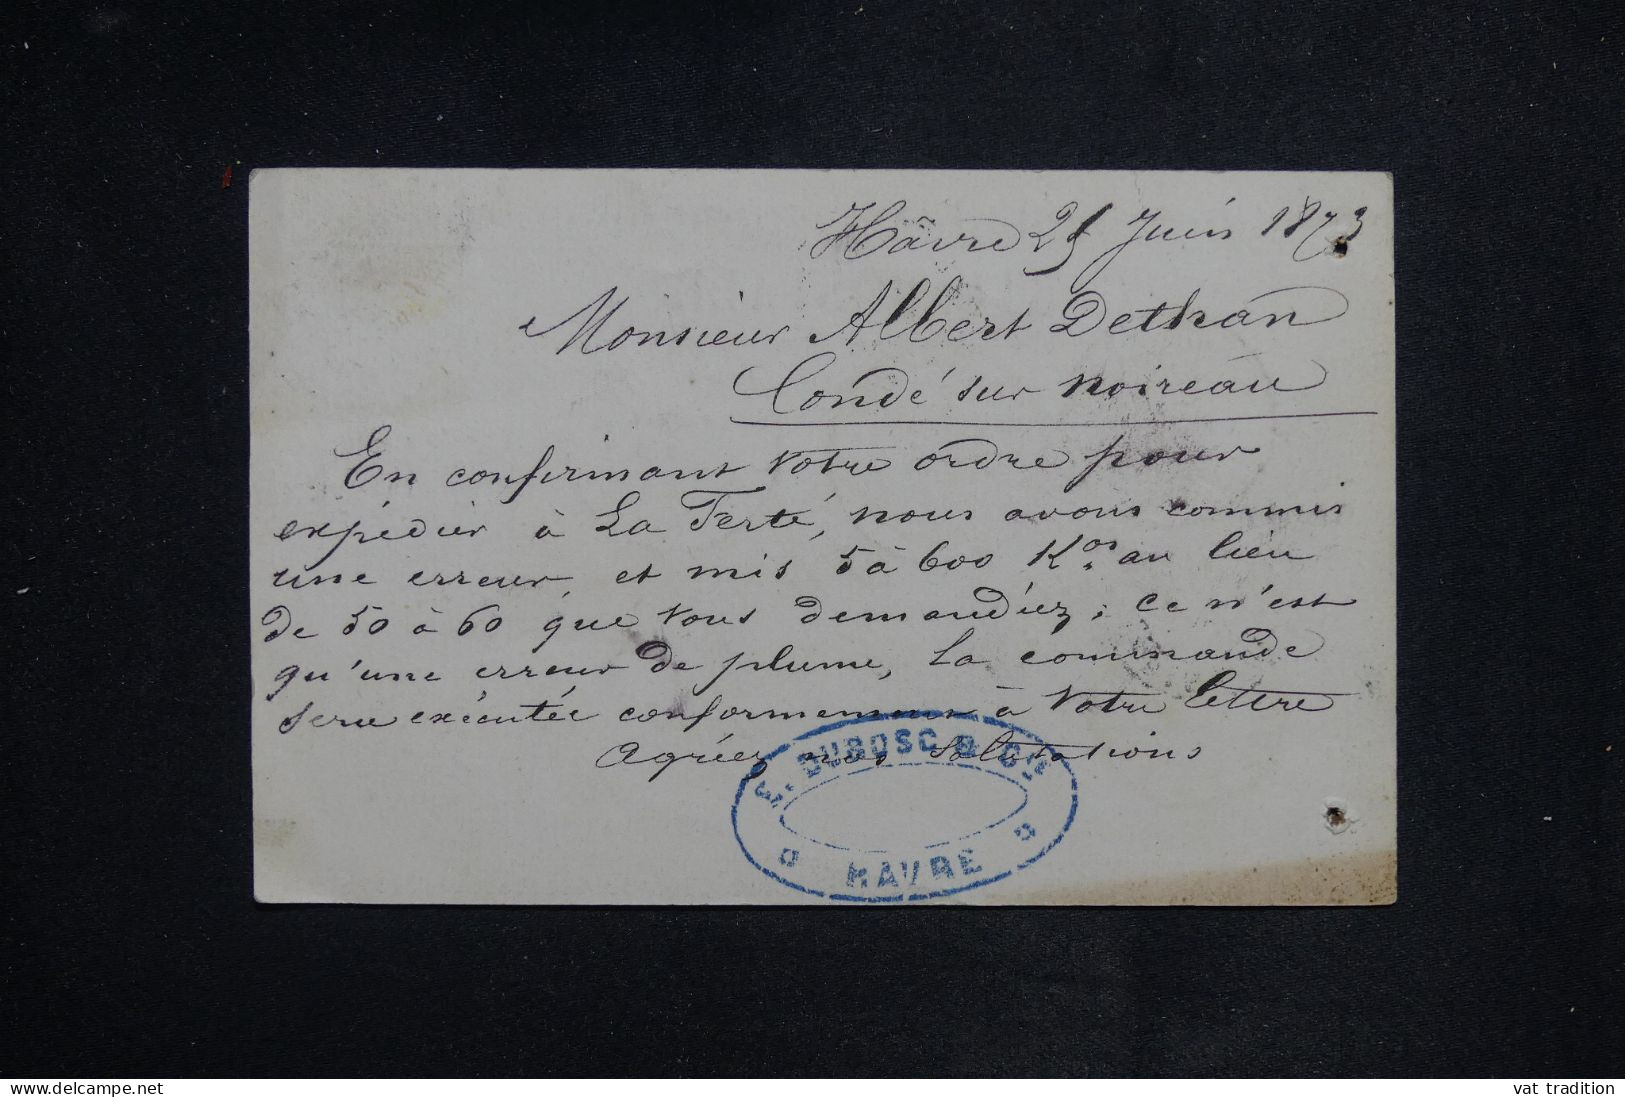 Hâvre 25 Juin 1873
Monsieur Albert Dethan
Condé sur Noireau
En confirmant votre ordre pour
expédier à La Ferté, nous avons commis
une erreur et mis 5 à 600 Kos au lieu
de 50 à 60 que vous demandiez; ce n'est
qu'une erreur de plume, la commande
sera exécutée conformement à votre lettre
Agréez nos Salutations
E. DUBOSC & CIE
HAVRE
www.delcampe.net
vat tradition